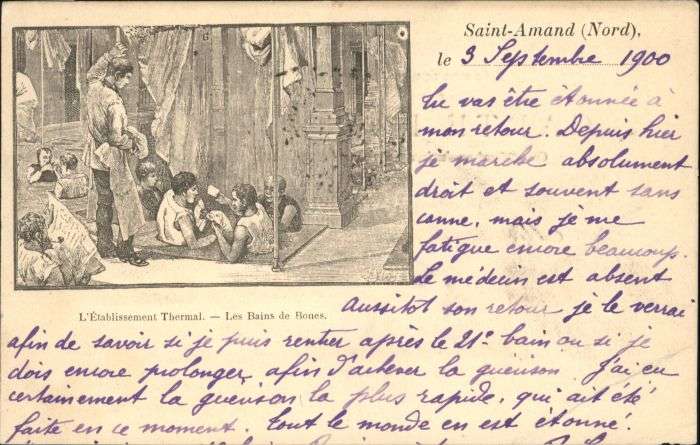 Saint-Amand (Nord),
le 3 Septembre 1900
Tu vas être étonnée à
mon retour. Depuis hier
je marche absolument
droit et souvent sans
canne, mais je me
fatigue encore beaucoup.
Le médecin est absent
L'Établissement Thermal. — Les Bains de Boues.
Aussitot son retour je le verrai
afin de savoir si je puis rentrer après le 21e bain ou si je
dois encore prolonger afin d'achever la guérison J'ai eu
certainement la guérison la plus rapide, qui ait été
faite en ce moment. Tout le monde en est étonné.